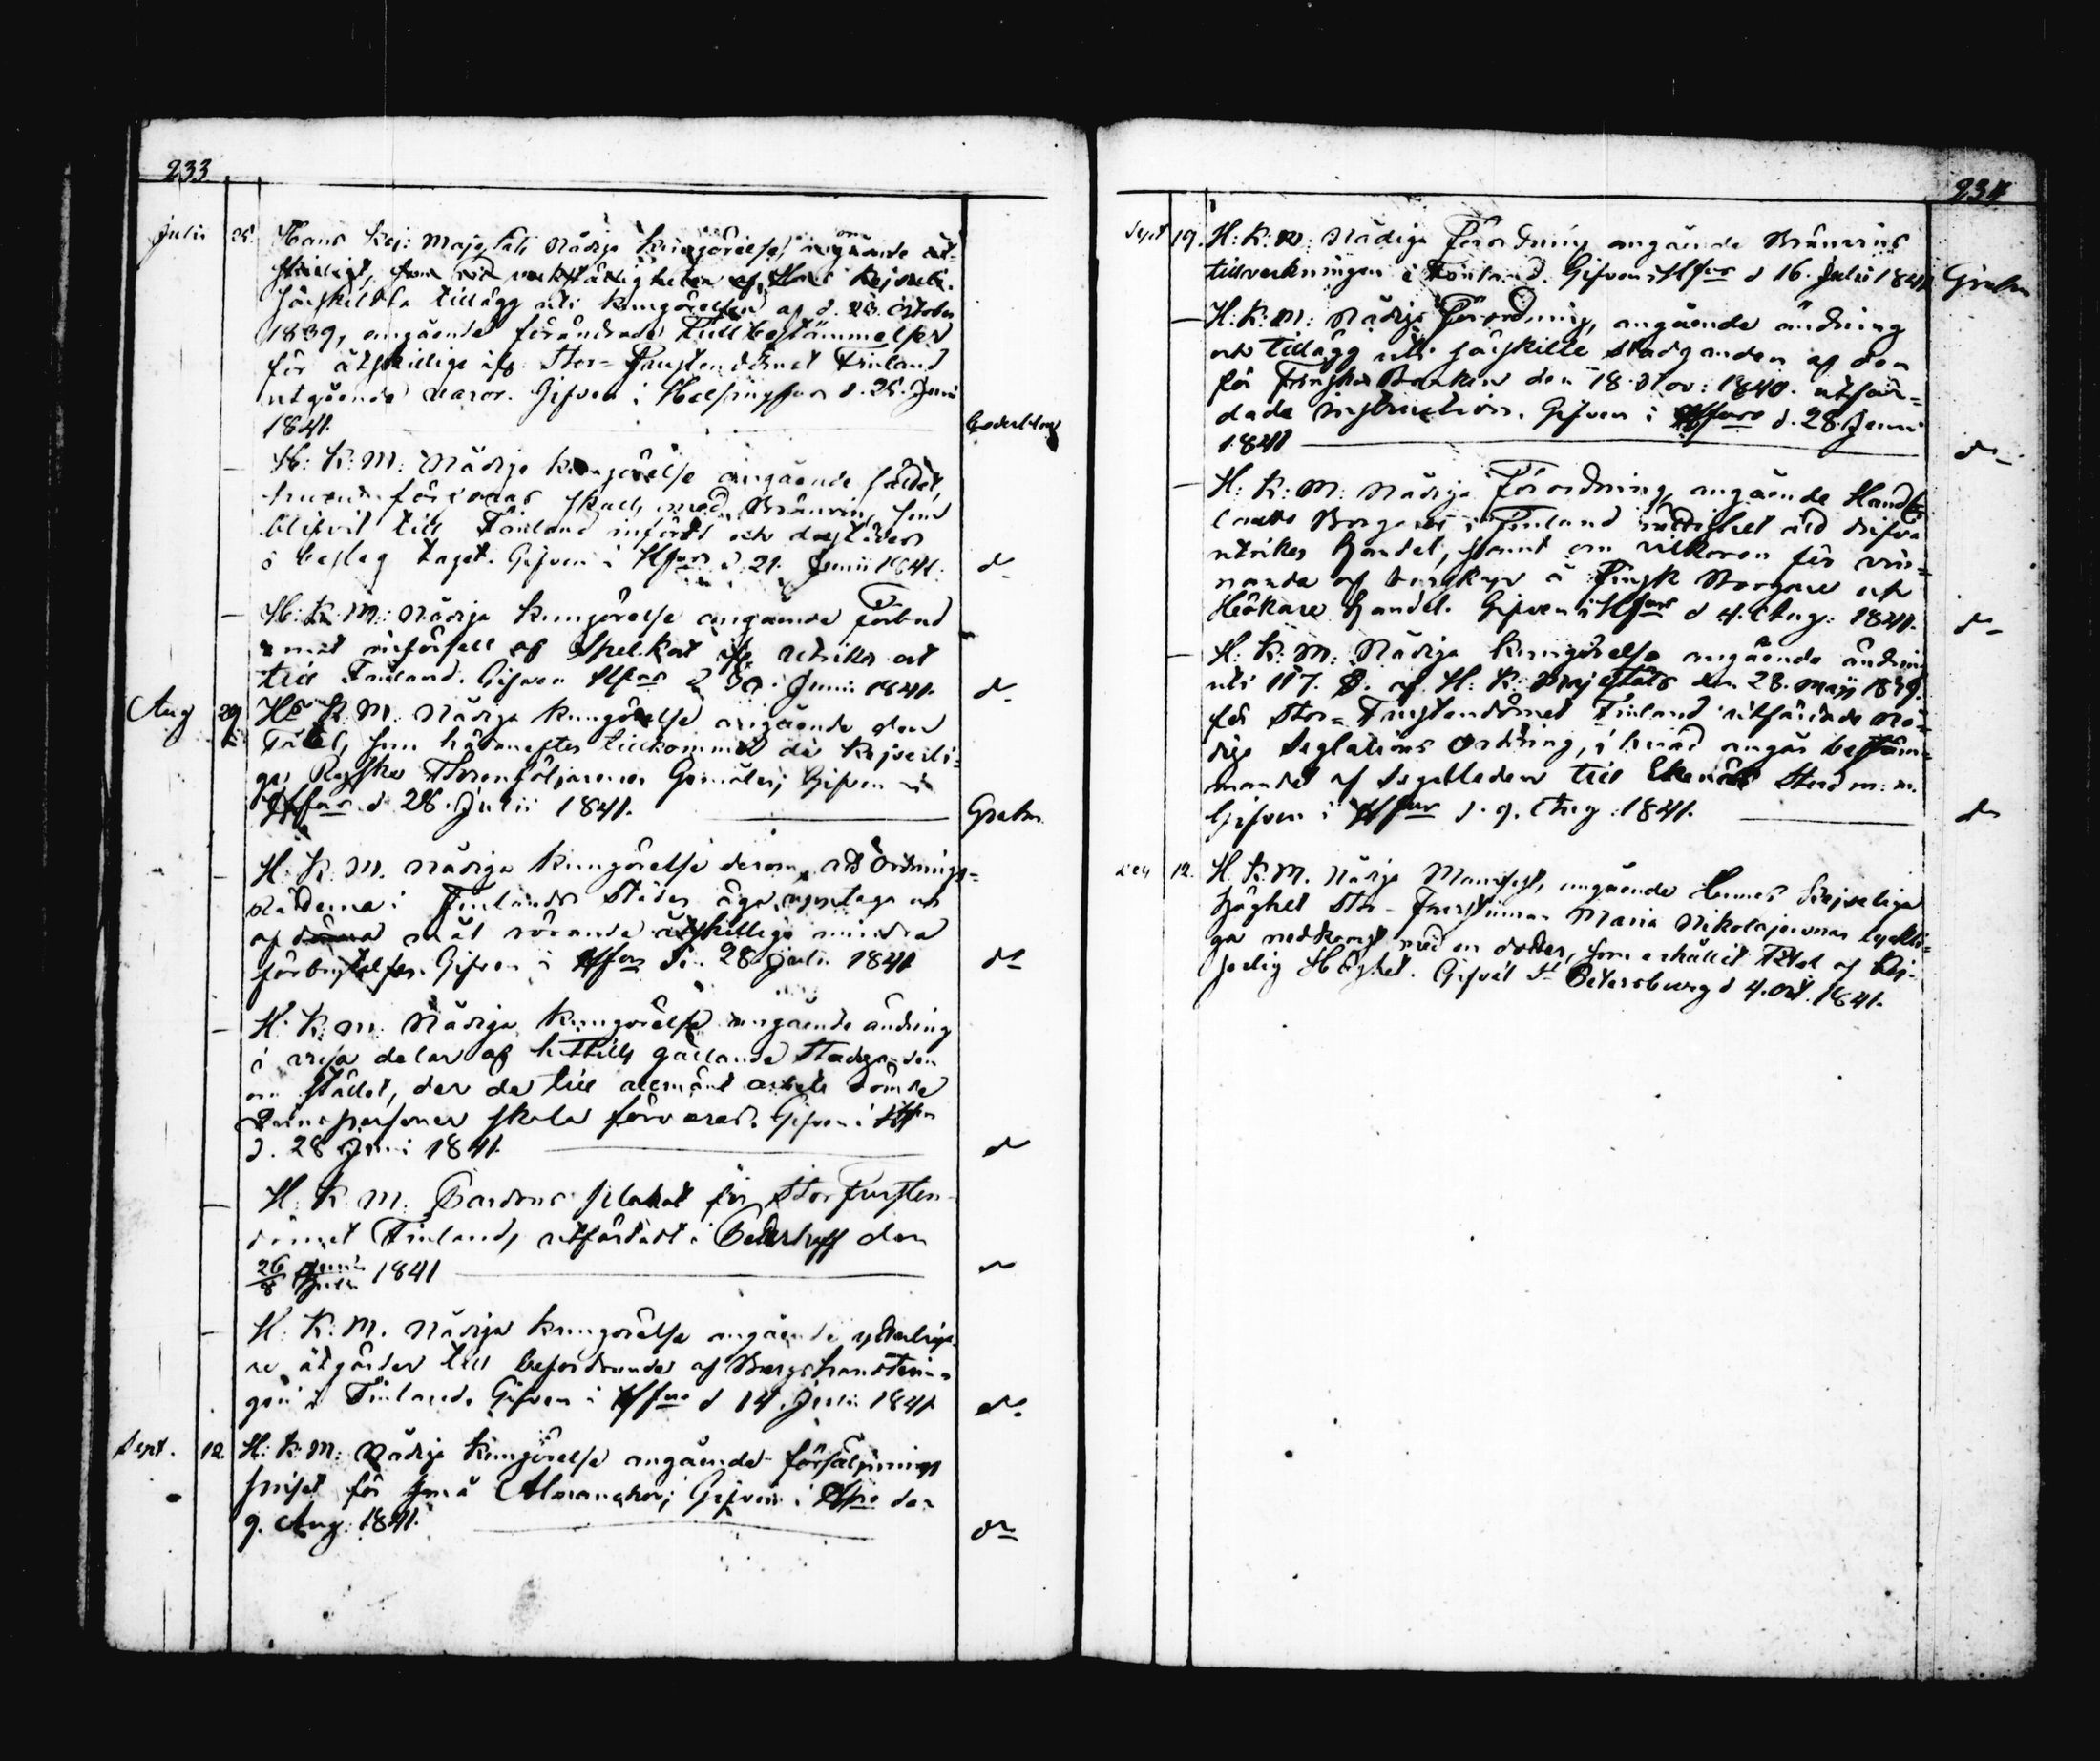 233
Julii 25. Hans Kej: Majestäts Nådiga Kungörelse, om
särskildta tillägg uti kungörelsen af d. 23. October
1839, angående förändrade Tullbestämmelser
för åtskillige ifr. Stor-Furstendömet Finland
utgående varor. Gifven i Helsingfors d. 25. Juni
1841.
— H: K: M: Nådiga kungörelse angående sättet,
huru förvaras skall, med Bränvin, som
blifvit till Finland infördt och derstädes
i beslag taget. Gifven i Hfors d. 21. Junii 1841. do
— H: K: M: Nådiga kungörelse angående Förbud
emot införsell af Spelkort ifr. utrikes ort
till Finland. Gifven Hfors d 30 Junii 1841. do
Aug 29 Hs K. M. Nådiga kungörelse angående den
Titel, som härefter tillkommer de Kejserli-
ga Ryska Thronföljarenes Gemåler; Gifven i
Hfors d 28. Julii 1841. Grahn
— H. K. M. Nådiga kungörelse derom, att Ordnings-
Rätterna i Finlands Städer äga upptaga och
afdöma mål rörande åtskilliga mindre
förbrytelser. Gifven i Hfors den 28 Julii 1841 do
— H. K. M. Nådiga kungörelse angående ändring
i vissa delar af hittills gällande Stadganden
om stället, der de till allmänt arbete dömde
Qvinspersoner skola förvaras. Gifven i Hfors
d. 28 Juni 1841. do
— H. K. M. Pardons plakat för StorFursten-
dömet Finland, utfärdadt i Peterhoff den
26 Junii
8 Julii 1841 do
— H. K. M. Nådiga kungörelse angående ytterliga-
re åtgärder till befordrande af Bergshanterin-
gen i Finland. Gifven i Hfors d 14. Julii 1841 do
Sept. 12. H: K: M: Nådiga kungörelse angående försäljnings
priset för små Almanachor; Gifven i Hfors den
9. Aug: 1841. do
234
Sept 19. H: K: M: Nådiga Förordning angående Bränvins
tillverkningen i Finland. Gifven i Hfors d 16. Julii 1841 Grahn
— H: K: M: Nådiga Förordning, angående ändring
och tillägg uti särskilte stadganden af den
för Finska Banken den 18. Nov: 1840. utfär-
dade instruction. Gifven i Hfors d. 28. Junii
1841 do
— H: K: M: Nådiga Förordning, angående Handl
lande Borgares i Finland rättighet att drifva
utrikes handel, samt om vilkoren för vin-
nande af burskap å Finsk Borgare och
Hökare handel. Gifven i Hfors d 4. Aug: 1841. do
— H: K: M: Nådiga kungörelse angående ändring
uti 117. §. af H: K: Majestäts den 28. Maji 1839.
för Stor-Furstendömet Finland utfärdade Nå-
dige Seglations Ordning, i hvad angår bestäm-
mandet af Segelleden till Ekenäs Stad m: m.
Gifven i Hfors d. 9. Aug: 1841. do
Dec 12. H. K. M. Nådiga Manifest, angående Hennes Kejserliga
Höghet Stor-Furstinnan Maria Nikolajevnas lyckli-
ga nedkomst med en dotter, som erhållit Titel af Kej-
serlig Höghet. Gifvit St Petersburg d 4. Oct. 1841.